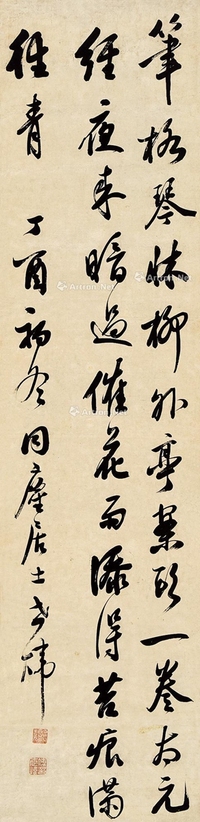 筆格琴牀柳外亭案頭一卷太元
經夜來暗過催花雨添得苔痕滿
徑青 丁酉初冬同塵居士煒